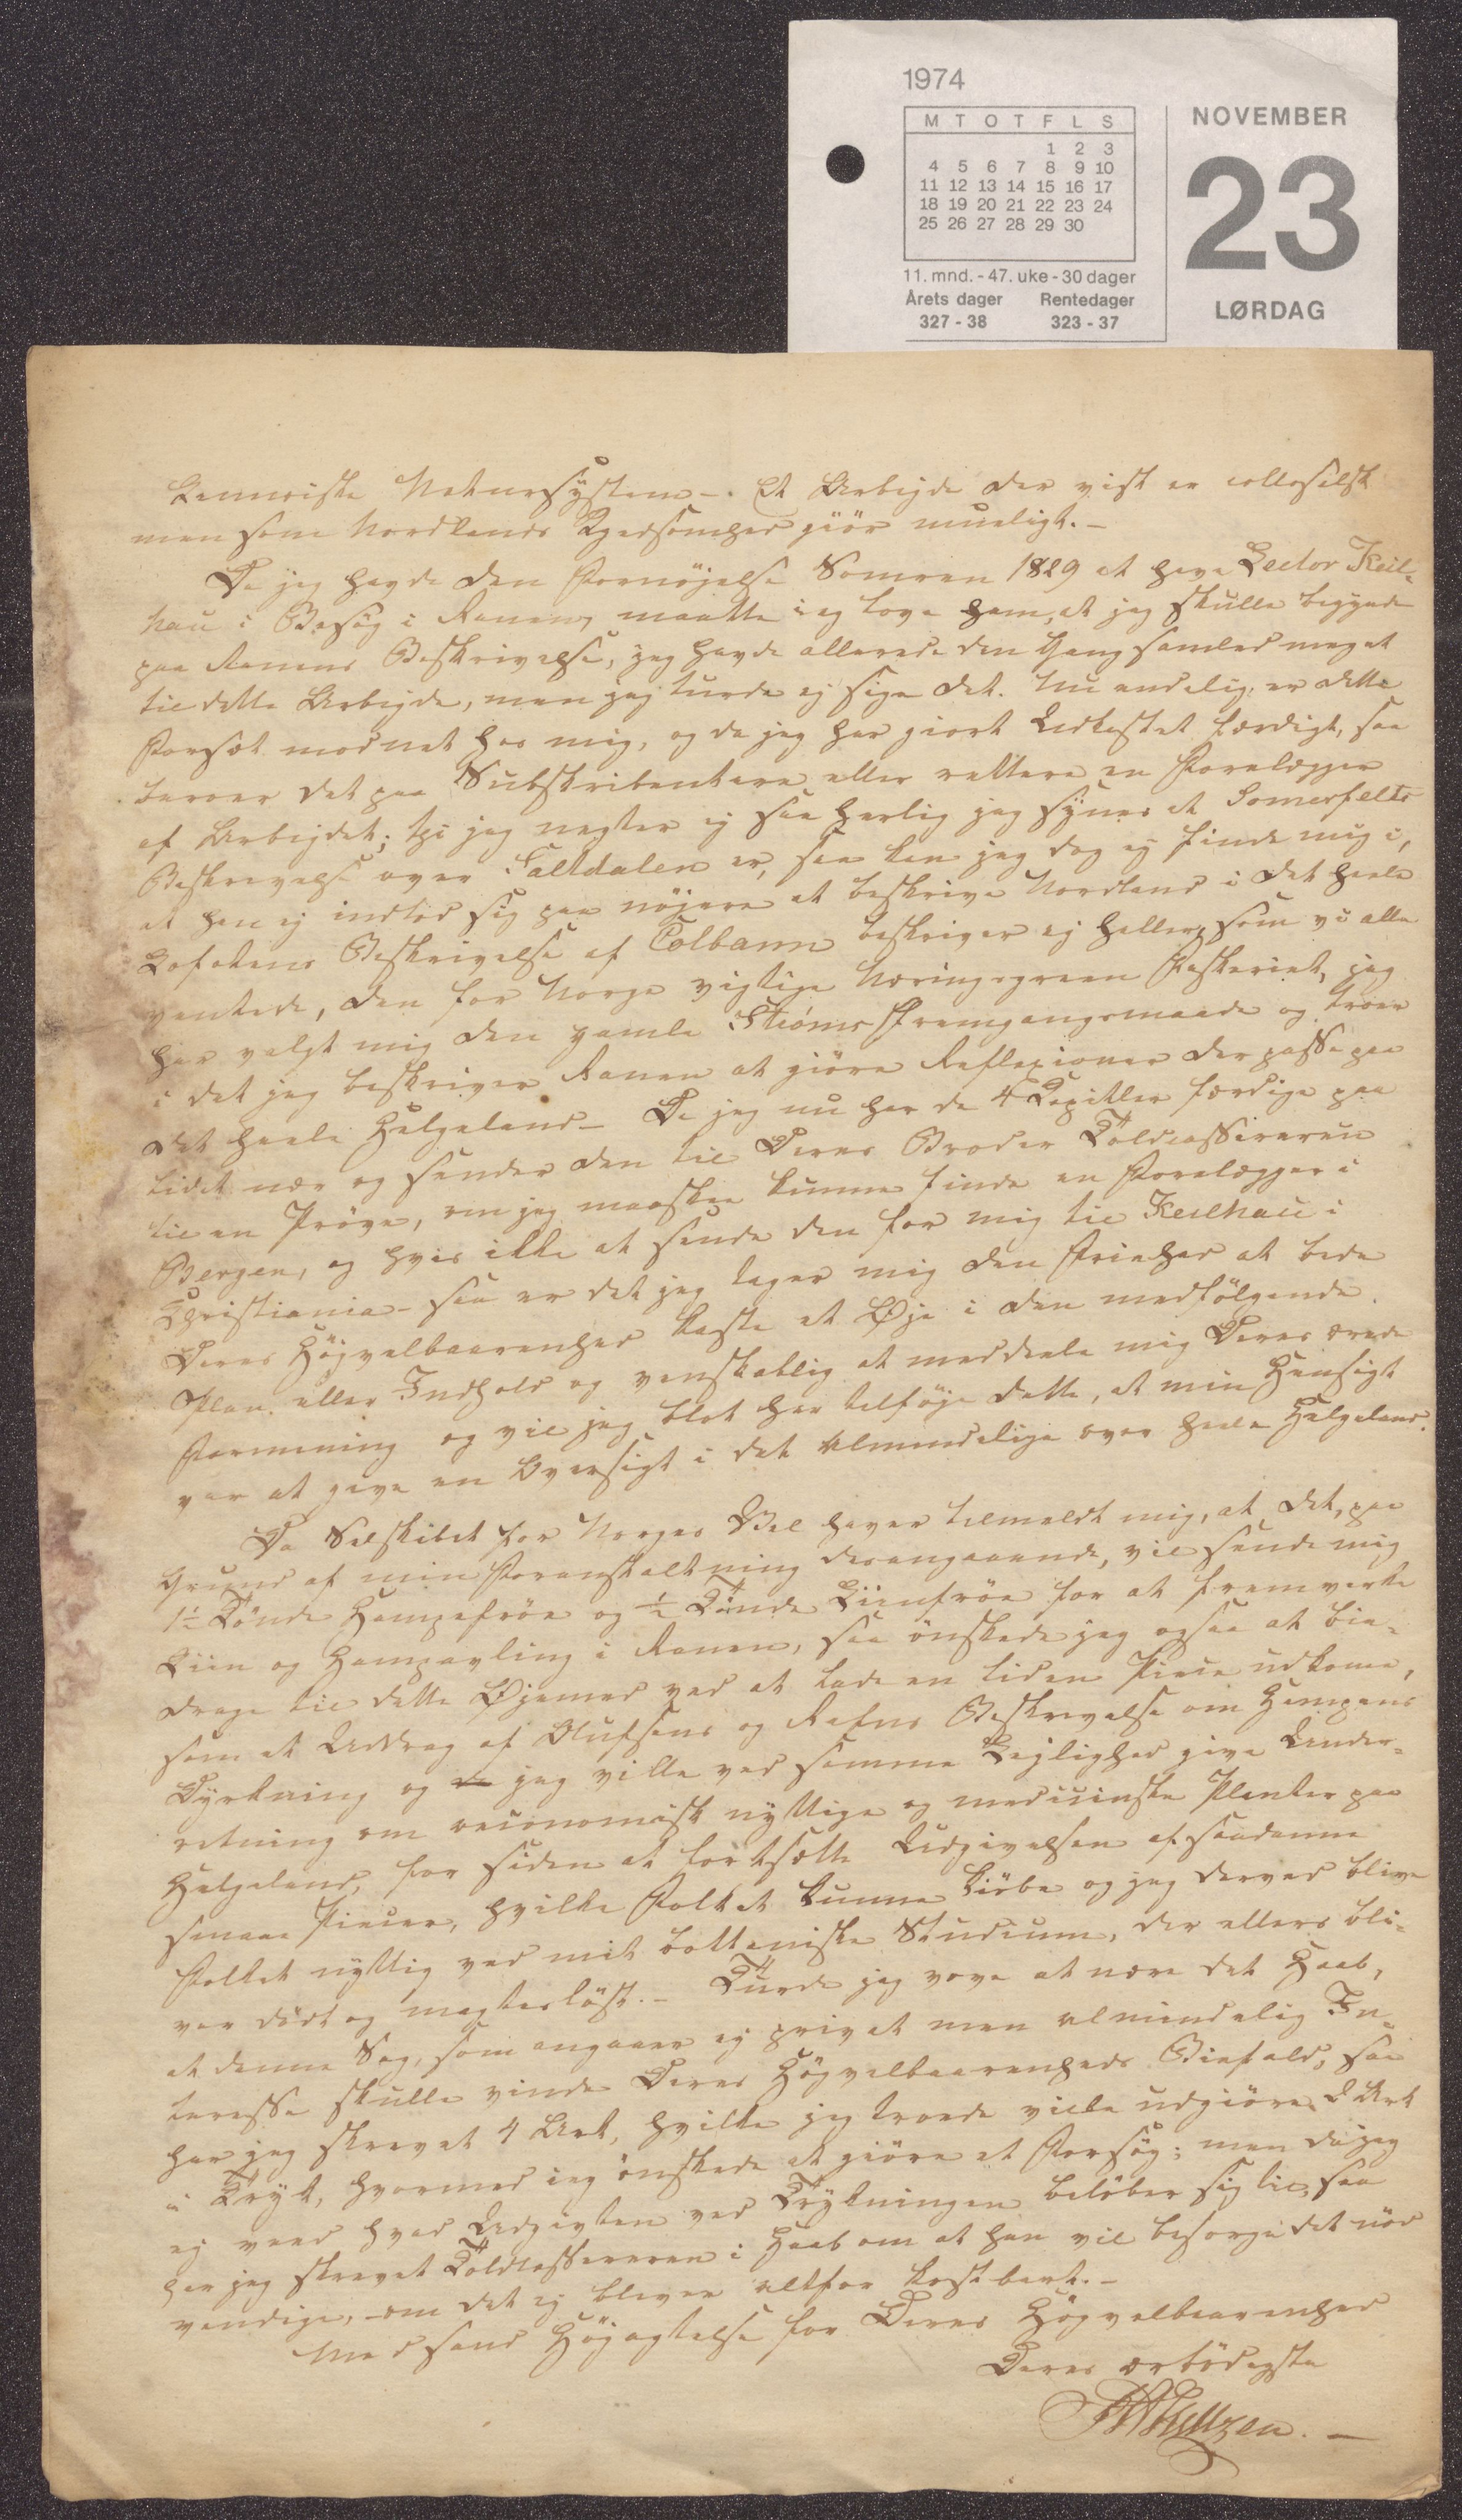 1974
NOVEMBER
M T O T F L S
1 2 3
4 5 6 7 8 9 10
11 12 13 14 15 16 17
18 19 20 21 22 23 24
25 26 27 28 29 30
23
11. mnd. - 47. uke - 30 dager
Årets dager Rentedager
327 - 38 323 - 37
LØRDAG
Natursystem -. Et Arbejde der vist er collosalsk
men som Nordlands giør mueligt. -
Da jeg havde den Fornøjelse Somren 1829 at have Lector Keil-
hau i Besøg i Ranen, maatte ieg love ham, at jeg skulle begynde
paa Ranens Beskrivelse, jeg havde allerede den Gang samled meget
til dette Arbejde, men jeg turde ej sige det. Nu endelig er dette
Forsæt modnet hos mig, og da jeg har giort Udkastet færdigt, saa
beroer det paa Subskribentere eller rettere en Forelægger
af Arbejdet; thi jeg negter ej saa herlig jeg synes at Somerfelts
Beskrivelse over Saltdalen er, saa kan jeg dog ej finde mig i,
at han ej indlod sig paa nøjere at beskrive Nordland i det heele
Lofotens Beskrivelse af Colbann beskriver ej heller, som vi alle
ventede, den for Norge vigtige Næringsgreen Fiskeriet, jeg
har valgt mig den gamle Strøms Fremgangsmaade og troer
i det jeg beskriver Ranen at giøre Reflexioner der passe paa
det heele Helgeland - Da jeg nu har de 4 Capitler færdige paa
lidet nær og sender den til Deres Broder Toldcassereren
til en Prøve, om jeg maaskee kunne finde en Forelægger i
Bergen, og hvis ikke at sende den for mig til Keilhau i
Christiania - saa er det jeg tager mig den Friehed at bede
Deres Højvelbaarenhed kaste et Øje i den medfølgende
Plan eller Indhold og venskablig at meddeele mig Deres ærede
Formening og vil jeg blot her tilføje dette, at min Hensigt
var at give en Oversigt i det Almindelige over heele Helgeland.
Da Selskabet for Norges Vel haver tilmeldt mig, at det, paa
Grund af min Foranstaltning desangaaende, vil sende mig
1½ Tønde Hampefrøe og ½ Tønde Liinfrøe for at fremvirke
Liin og Hampavling i Ranen, saa ønskede jeg ogsaa at bie-
drage til dette Øjemed ved at lade en liden Piece udkome,
som et Uddrag af Olufsens og Rafns Beskrivelse om Hampens
Dyrkning og jeg ville ved samme Lejlighed give Under-
retning om oeconomisk nyttige og medicinske Planter paa
Helgeland, for siden at fortsætte Udgivelsen af saadanne
smaae Piecer, hvilke Folket kunne kiøbe og jeg derved blive
Folket nyttig ved mit bottaniske Studium, der ellers bli-
ver dødt og magtesløst. - Turde jeg vove at nære det Haab,
at denne Sag, som angaaer ej privat men almindelig In-
teresse skulle vinde Deres Højvelbaarenheds Biefald, saa
har jeg skrevet 4 Ark, hvilke jeg troede ville udgiøre 2 Ark
i Tryk, hvormed ieg ønskede at giøre et Forsøg; men da jeg
ej veed hvad Udgivten ved Trykningen beløber sig til, saa
har jeg skrevet Toldcassereren i Haab om at han vil besørge det nød
vendige, - om det ej bliver altfor kostbart. -
Med sand Højagtelse for Deres Højvelbaarenhed
Deres ærbødigste